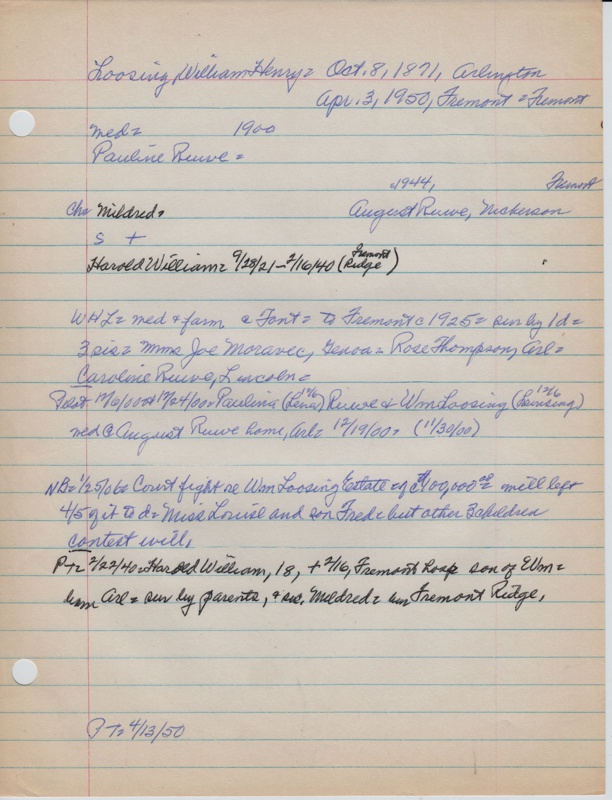 Loosing, William Henry = Oct. 8, 1871, Arlington
Apr. 3, 1950, Fremont = Fremont
med = 1900
Pauline Ruwe =
c1944, Fremont
Ch = Mildred = August Ruwe, Nickerson
S +
Harold William = 9/28/21 - 2/16/40 (Fremont Ridge)
WHL = med + farm @ Font = to Fremont c 1925 = sur by 1 d =
3 sis = Mmes Joe Moravec, Genoa = Rose Thompson, Arl =
Caroline Ruwe, Lincoln =
12/6 12/6
12/6/00 + 12/24/00 = Paulina (Lena) Ruwe + Wm Loosing
med @ August Ruwe home, Arl = 12/19/00 = (11/30/00)
NB = 1/25/06 = Court fight re Wm Loosing Estate = of c $100,000.00 = will left
4/5 of it to d = Miss Louise and son Fred = but other 3 children
contest will,
PT = 2/22/40 = Harold William, 18, + 2/16, Fremont hosp son of Wm =
Arl = sur by parents, + sis. Mildred = Fremont Ridge,
PT = 4/13/50